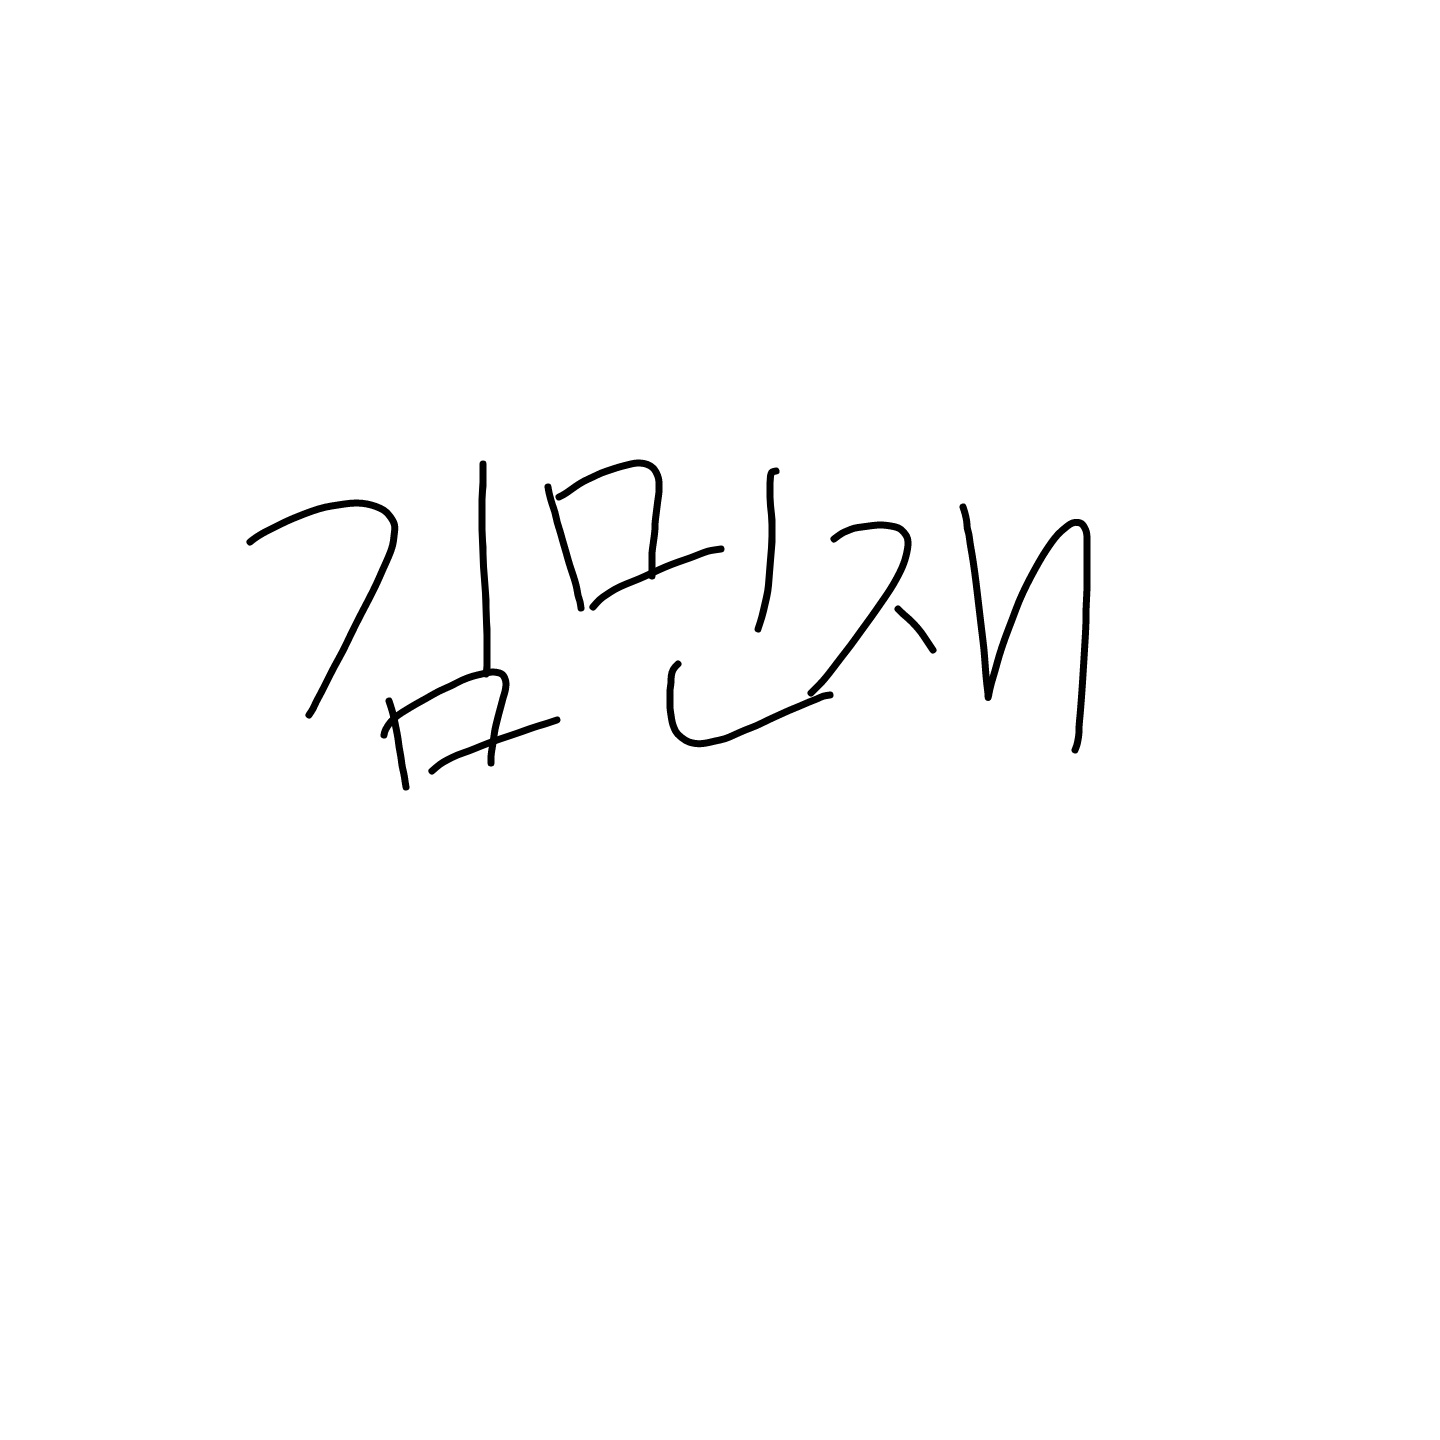 김민재